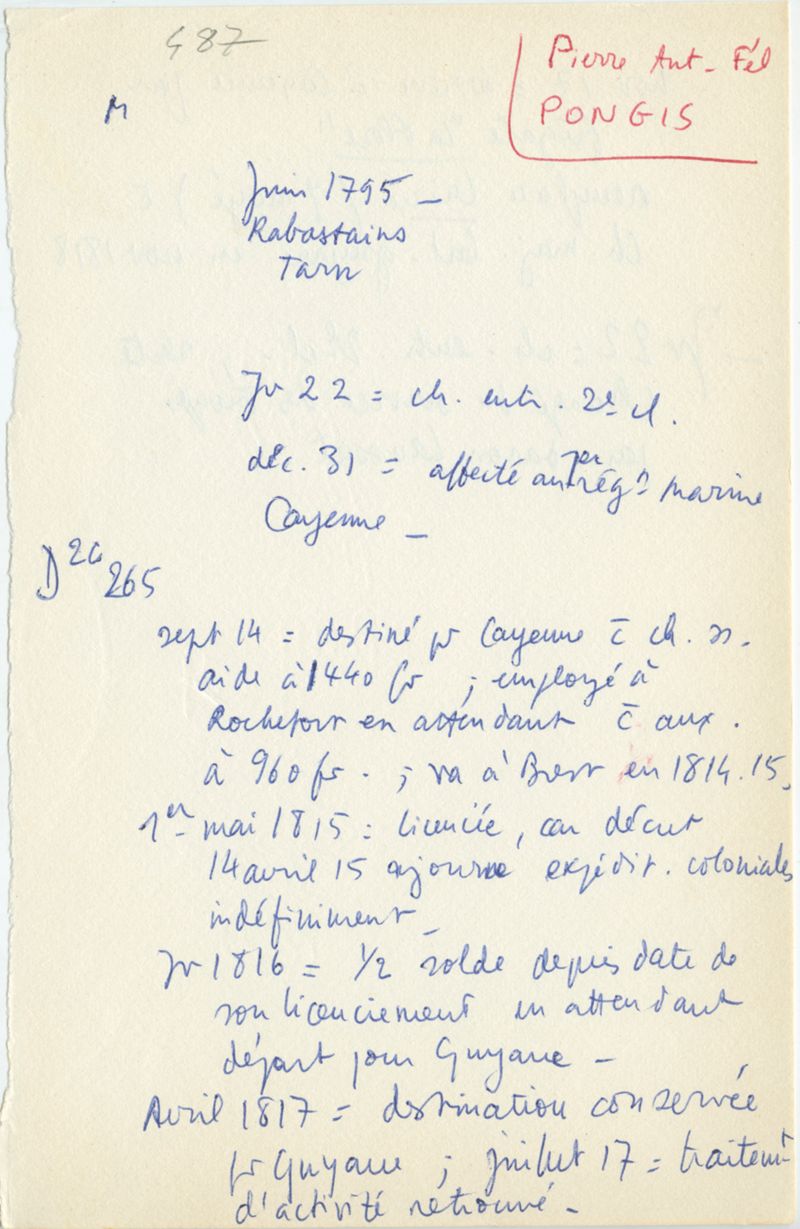 487
Pierre Ant-Fél
PONGIS
M
Juin 1795 -
Rabastains
Tarn
Jv 22 = ch. entr. 2e cl.
déc. 31 = affecté au 1er rég^n marine
Cayenne -
D^2G 265
sept 14 = destiné pr Cayenne c̄ ch. ss.
aide à 1440 fr ; employé à
Rochefort en attendant c̄ aux.
à 960 fr. ; va à Brest en 1814.15.
1er mai 1815 = licenciée, car décret
14 avril 15 ajourne expédit. coloniales
indéfiniment -
Jv 1816 = 1/2 solde depuis date de
son licenciement en attendant
départ pour Guyane -
Avril 1817 = destination conservée
pr Guyane ; juillet 17 = traitemt
d'activité retrouvé -